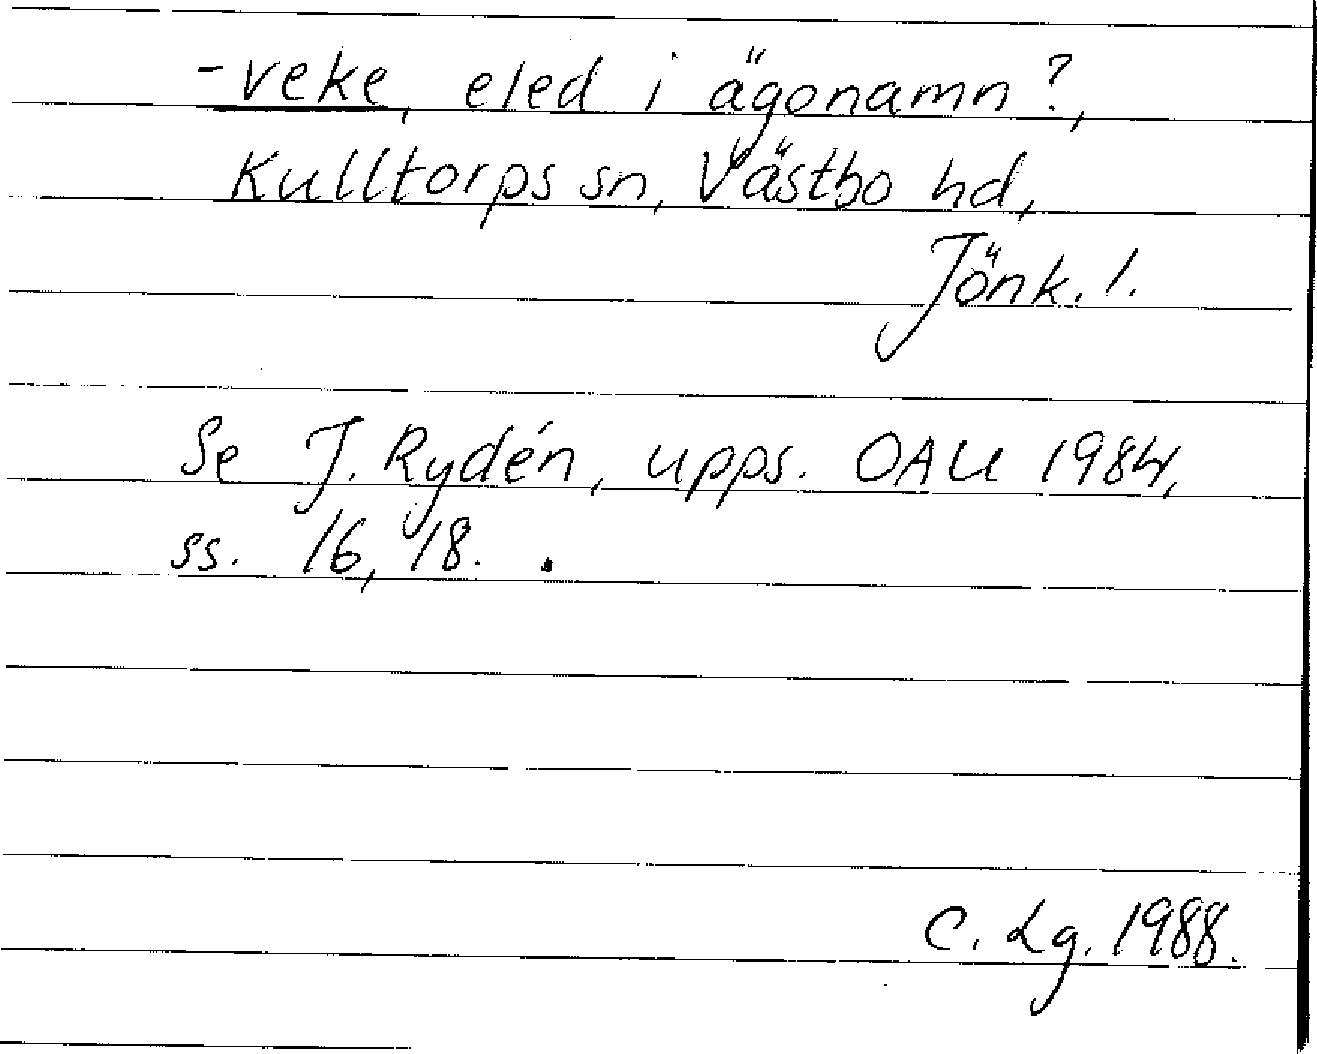 -veke, eled i ägonamn?,
Kulltorps sn, Västbo hd,
Jönk. l.
Se J. Rydén, upps. OAU 1984,
ss. 16, 18.
C. Lg. 1988.